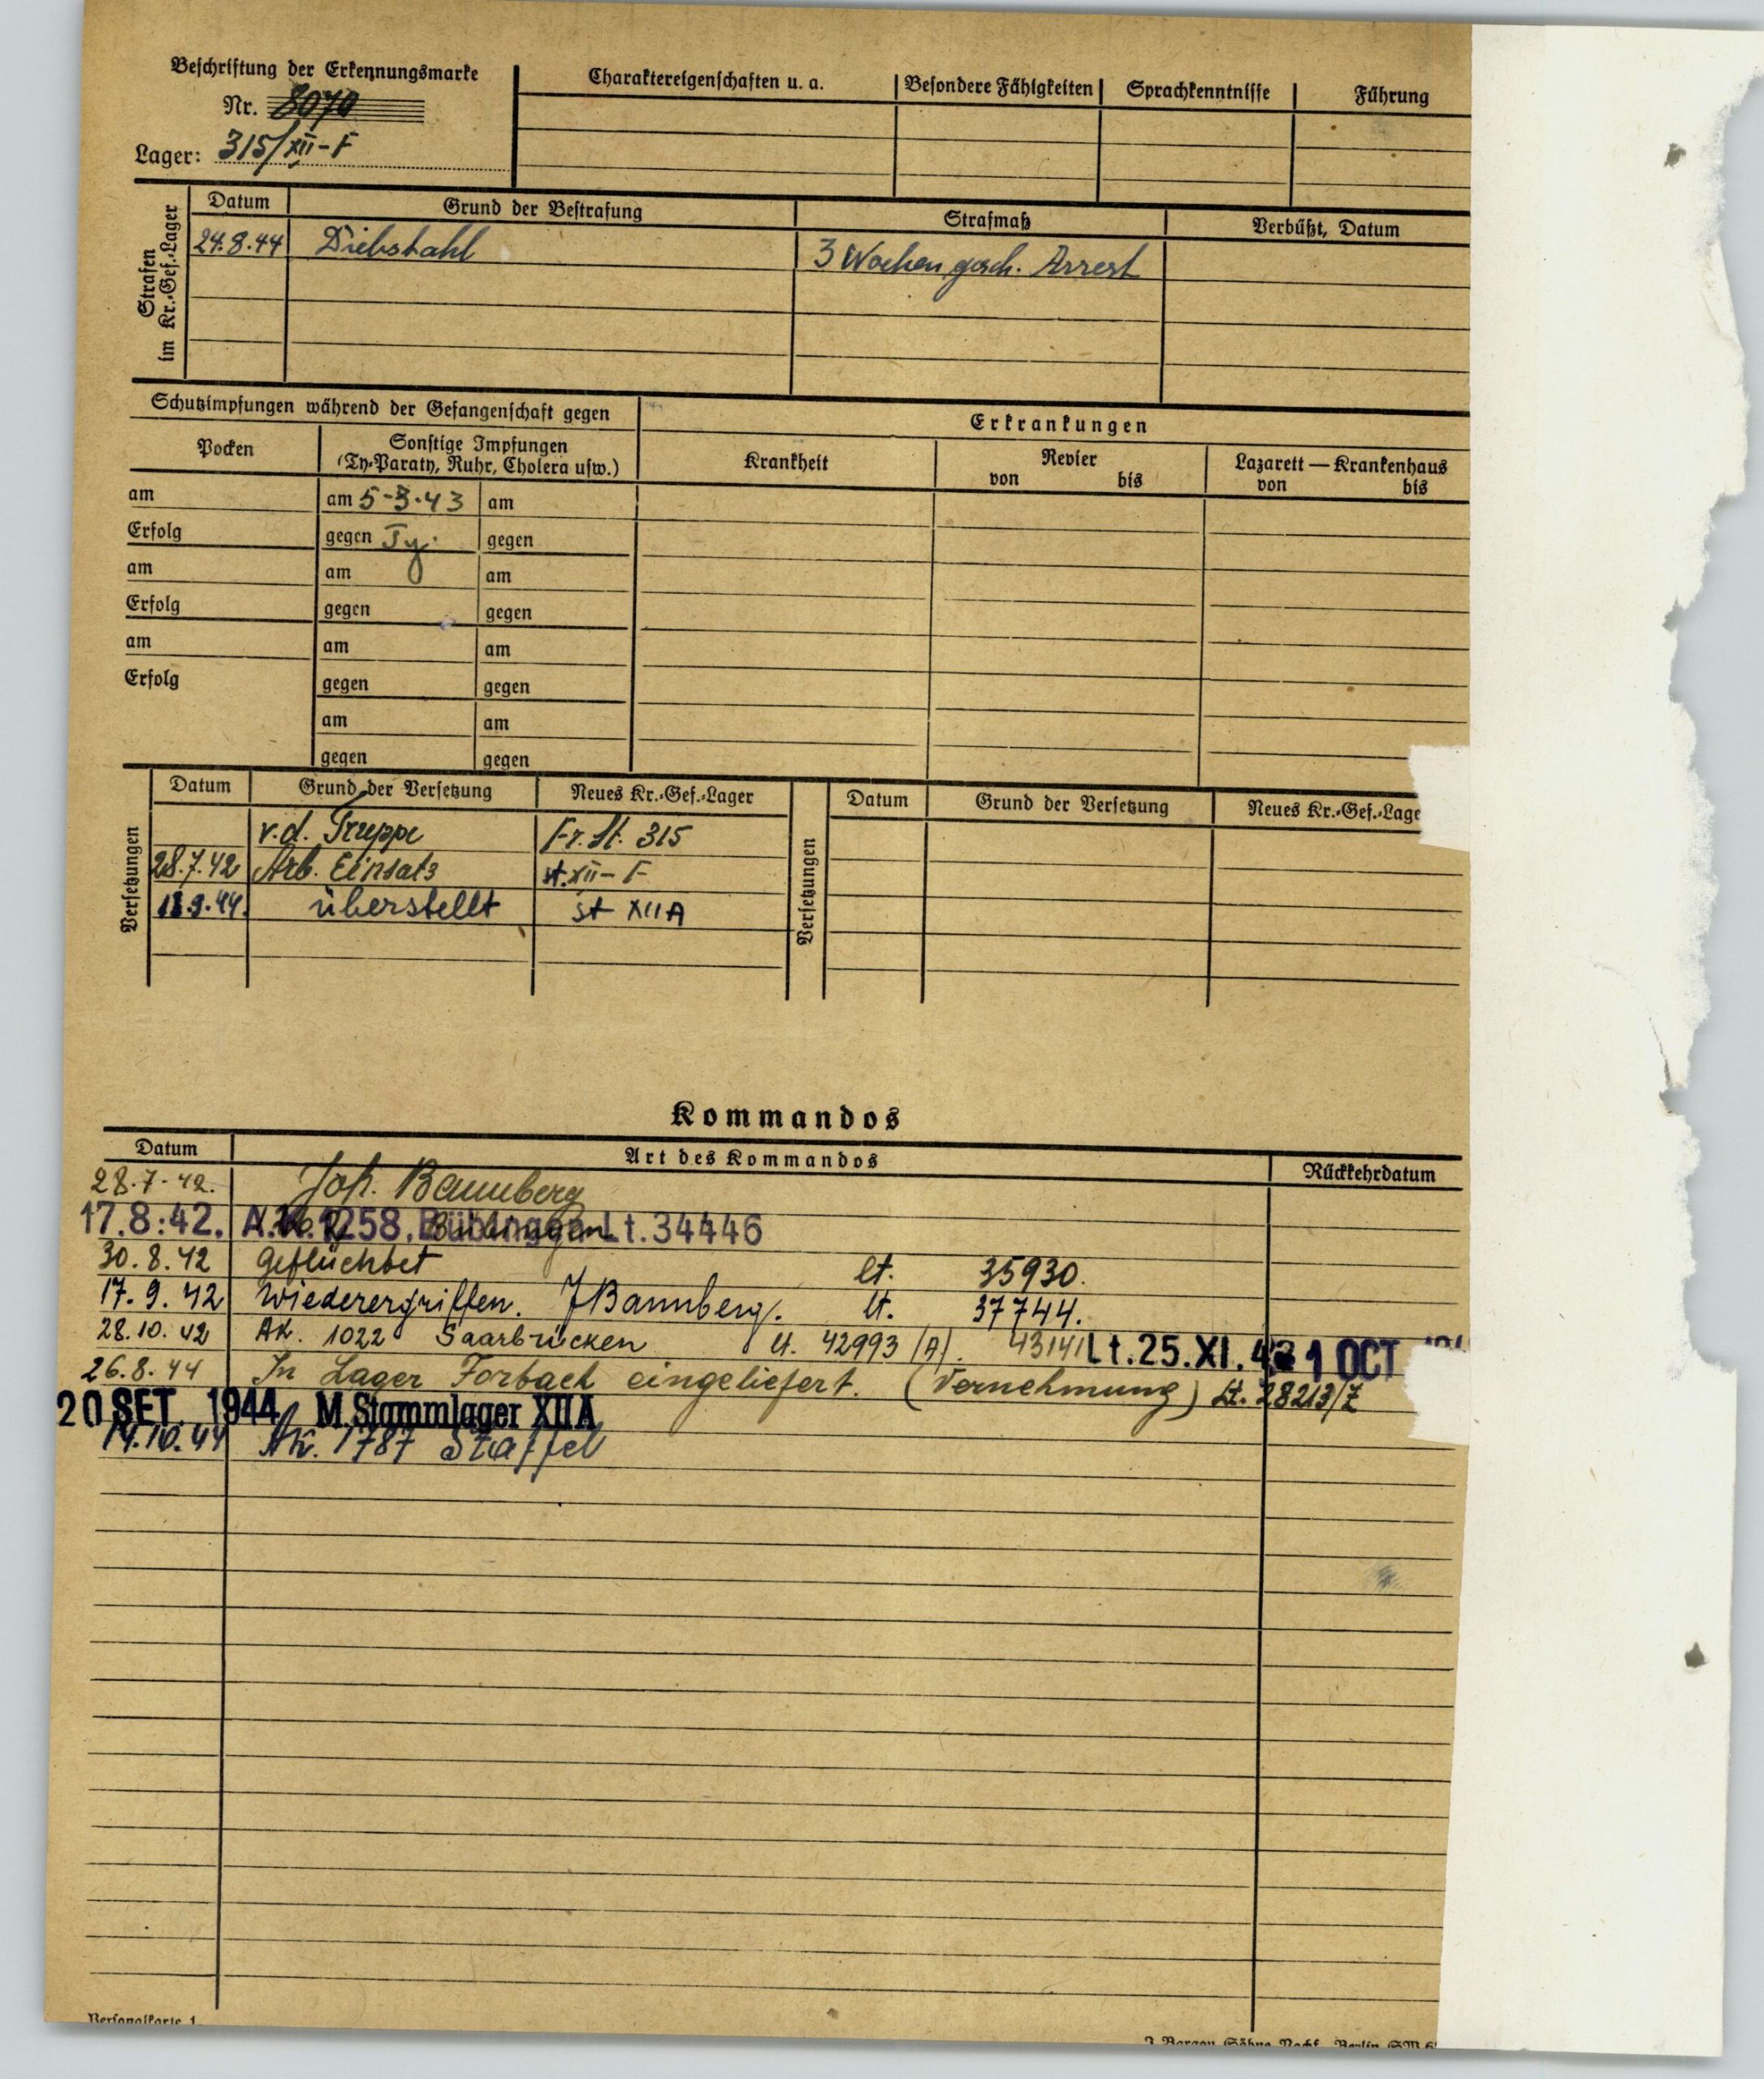 Beschriftung der Erkennungsmarke
Nr. 8070
Lager: 315/XII-F
Charaktereigenschaften u. a. Besondere Fähigkeiten Sprachkenntnisse Führung
Strafen im Kr.-Gef.-Lager
Datum Grund der Bestrafung Strafmaß Verbüßt, Datum
24.8.44 Diebstahl 3 Wochen gesch. Arrest
Schutzimpfungen während der Gefangenschaft gegen
Erkrankungen
Pocken Sonstige Impfungen
(Ty-Paraty, Ruhr, Cholera usw.)
Krankheit Revier Lazarett — Krankenhaus
von bis von bis
am am 5-3-43 am
Erfolg gegen Ty. gegen
am am am
Erfolg gegen gegen
am am am
Erfolg gegen gegen
am am
gegen gegen
Versetzungen
Datum Grund der Versetzung Neues Kr.-Gef.-Lager
v.d. Truppe Fr. St. 315
28.7.42 Arb. Einsatz st. XII-F
18.9.44. überstellt st XIIA
Versetzungen
Datum Grund der Versetzung Neues Kr.-Gef.-Lage
Kommandos
Datum Art des Kommandos Rückkehrdatum
28.7.42. Joh. Bannberg
17.8:42. A.K.1258. Bübingen Lt. 34446
30.8.42 geflüchtet lt. 35930.
17.9.42 Wiederergriffen. J Bannberg. lt. 37744.
28.10.42 AK. 1022 Saarbrücken lt. 42993 (A). 43141 Lt. 25. XI. 42 1 OCT
26.8.44 In Lager Forbach eingeliefert. (Vernehmung) Lt. 28213/Z
20 SET. 1944 M. Stammlager XII A
14.10.44 AK. 1787 Staffel
Personalkarte 1.